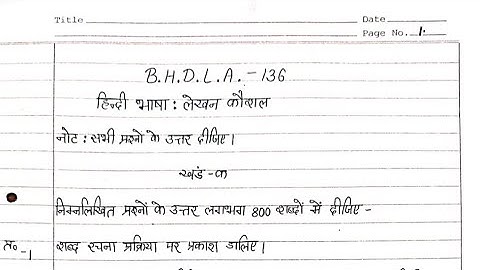 Title
Date
Page No. 1.
B.H.D.L.A.-136
हिन्दी भाषा : लेखन कौशल
नोट : सभी प्रश्नो के उत्तर दीजिए।
खंड-क
निम्नलिखित प्रश्नों के उत्तर लगभग 800 शब्दों में दीजिए -
प्र० -1 शब्द रचना प्रक्रिया पर प्रकाश डालिए।